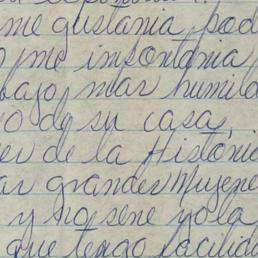 me gustaria pod
me importaria
bajo mas humild
o de su casa,
er de la Historia
ar grandes Mujere
y no sere yo la
que tengo facilida